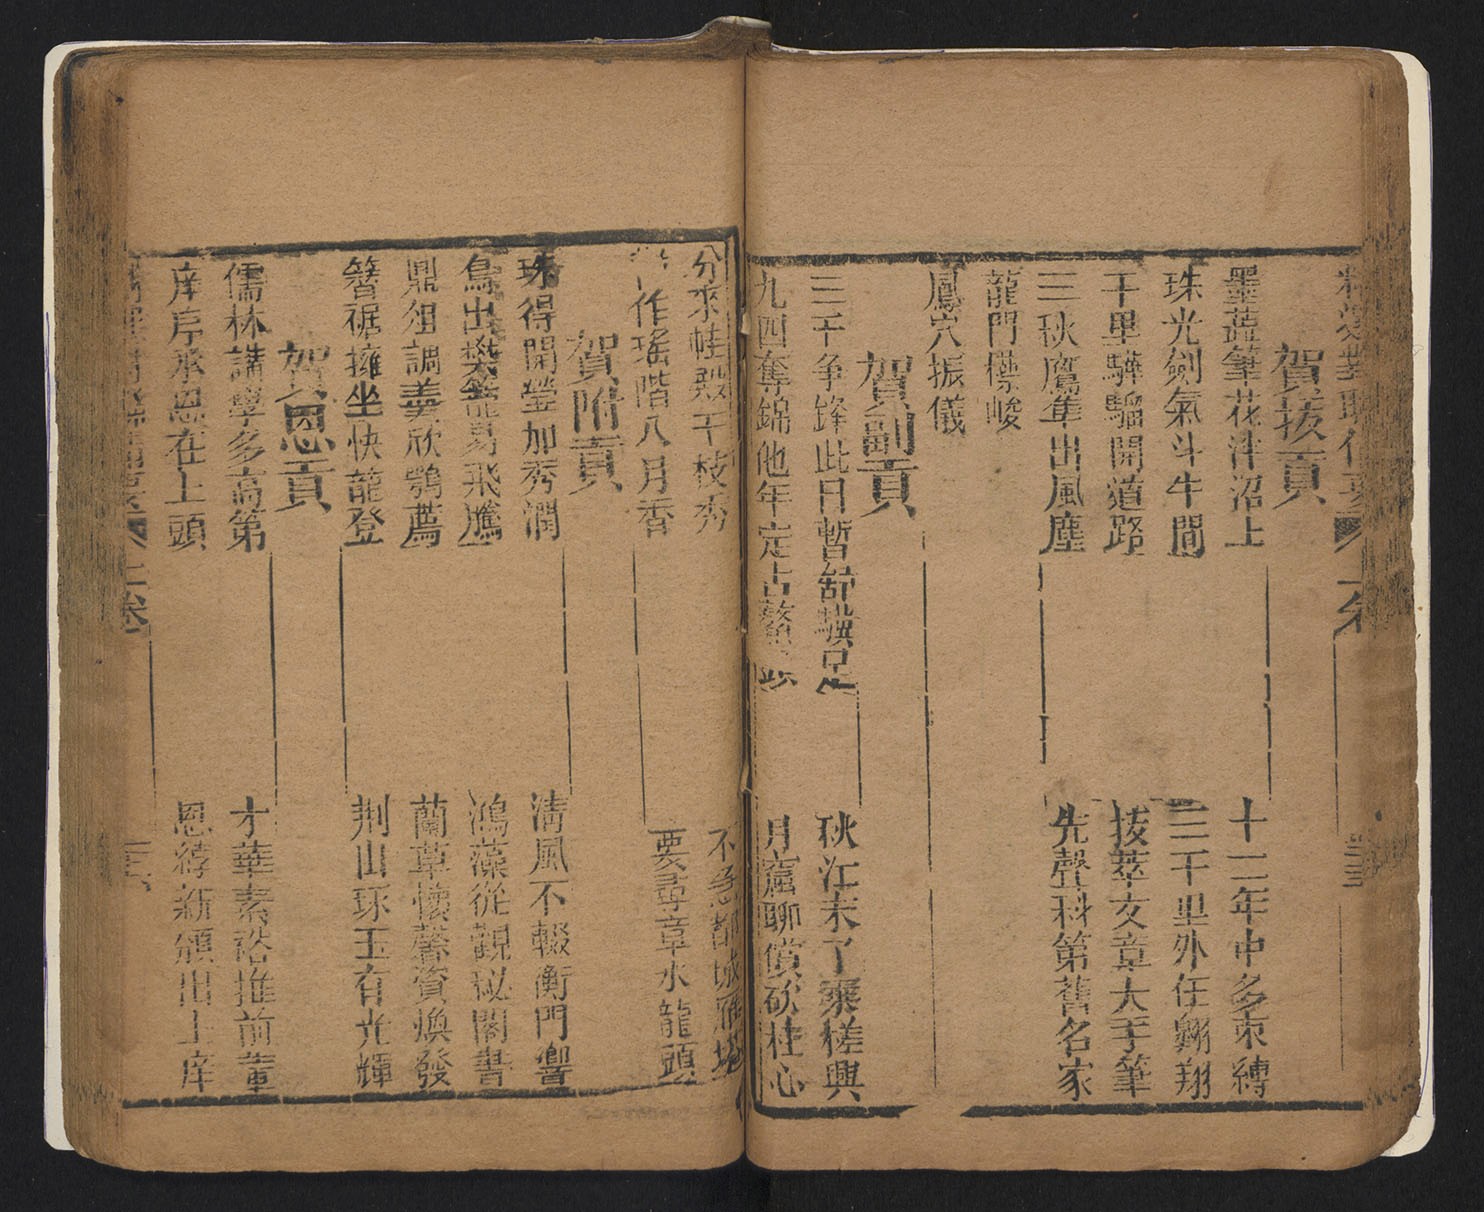 賀拔貢
墨蘸筆花津沼上
十二年中多束縛
珠光劍氣斗牛間
三千里外任翱翔
千里驊騮開道路
拔萃文章大手筆
三秋鷹隼出風塵
先聲科第舊名家
龍門標峻
鳳穴振儀
賀副貢
三千爭鋒此日暫舒驥足
秋江未了乘槎興
九四奪錦他年定占鰲
月窟聊償砍桂心
分來桂殿千枝秀
不忝都城雁塔
作瑤階八月香
要尋章水龍頭
賀附貢
珠得開瑩加秀潤
清風不輟衡門響
鳥出樊籠易飛騰
鴻藻從觀秘閣書
鼎俎調羹欣鶚薦
蘭草懷馨資煥發
簪裾擁坐快龍登
荆山琢玉有光輝
賀恩貢
儒林講學多高第
才華素裕推前輩
庠序承恩在上頭
恩待新頒出上庠
上卷